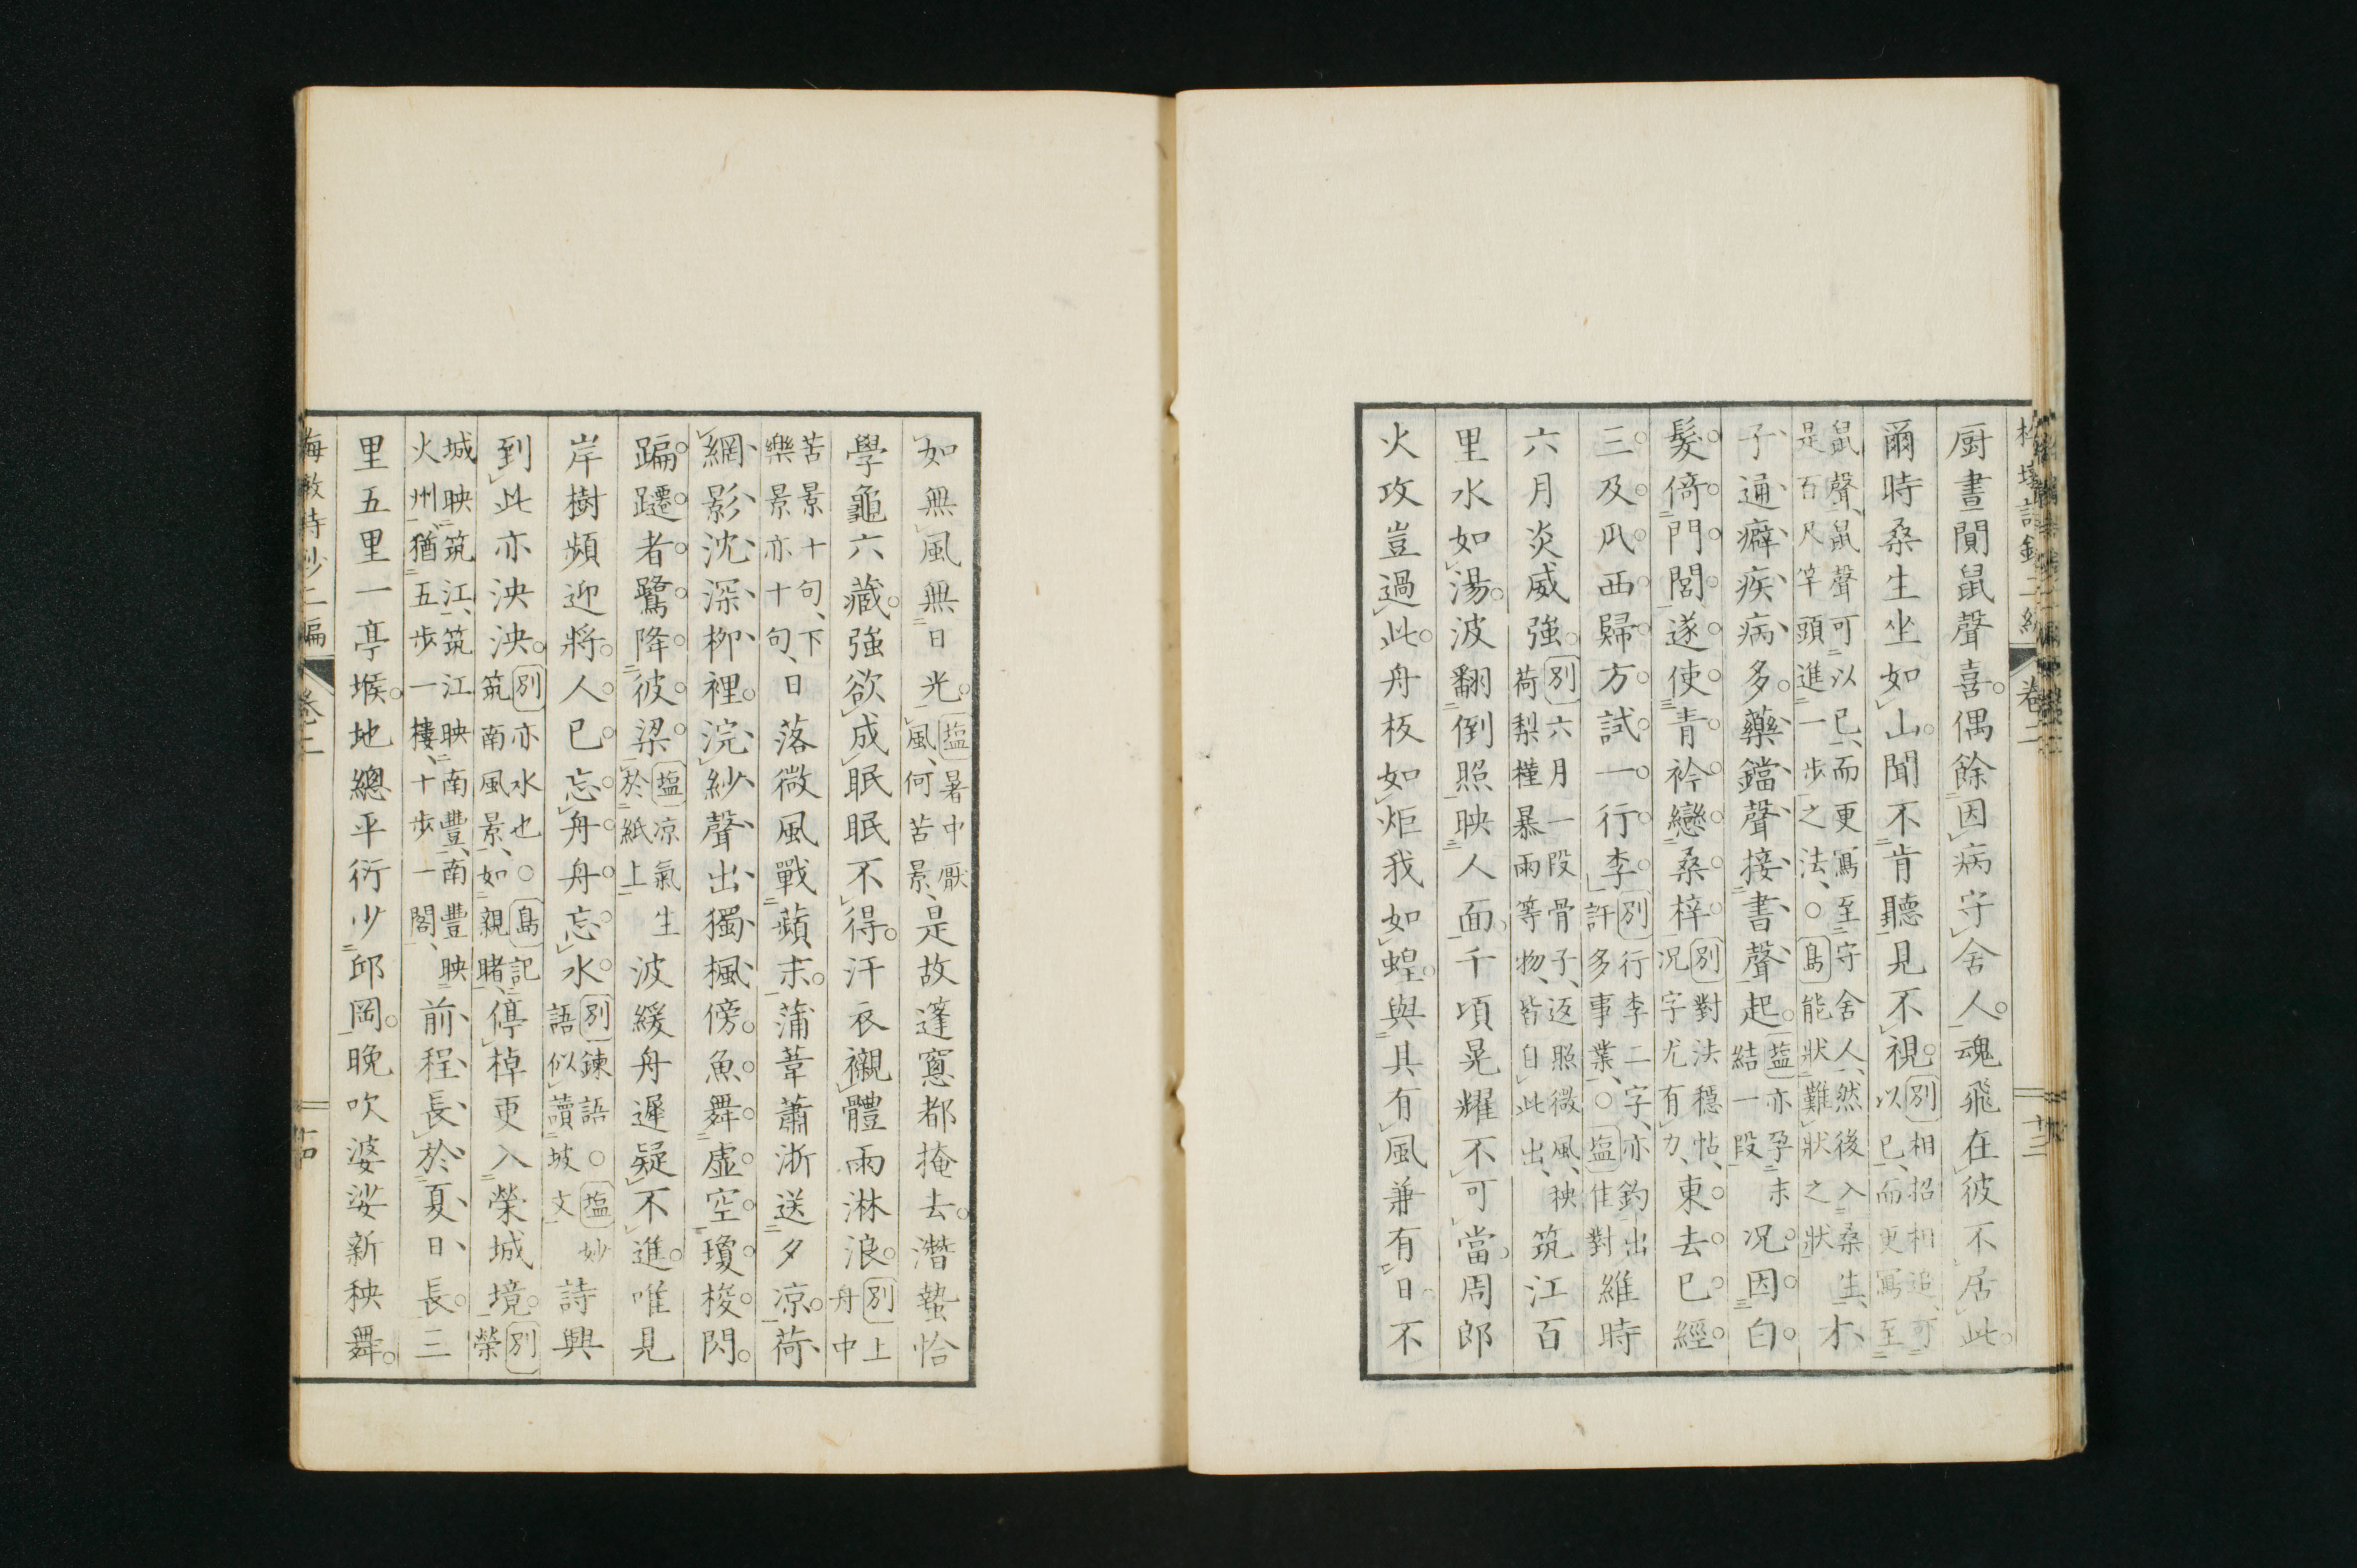 厨晝聞鼠聲喜偶餘因病守舍人魂飛在彼不居此
爾時桑生坐如山聞不肯聽見不視別相招相追可以已而更寫至
鼠聲鼠聲可以已而更寫至守舍人然後入桑生才是百尺竿頭進一步之法○島能狀難狀之狀
子通癖疾病多藥鐺聲接書聲起藍亦孕末結一段況因白
髮倚門閭遂使青衿戀桑梓別對法穩帖況字尤有力東去已經
三及瓜西歸方試一行李別行李二字亦釣出許多事業○塩佳對維時
六月炎威強別六月一段骨子返照微風秧荷梨槿暴雨等物皆自此出筑江百
里水如湯波翻倒照映人面千頃晃耀不可當周郎
火攻豈過此舟板如炬我如蝗與其有風兼有日不
如無風無日光塩暑中厭風何苦景是故篷窓都掩去潛蟄恰
學龜六藏強欲成眠眠不得汗衣襯體雨淋浪別上舟中
苦景十句下樂景亦十句日落微風戰蘋末蒲葦蕭淅送夕凉荷
網影沈深柳裡浣紗聲出獨楓傍魚舞虛空瓊梭閃
蹁躚者鷺降彼梁塩凉氣生於紙上波緩舟遲疑不進唯見
岸樹頻迎將人已忘舟舟忘水別鍊語○塩妙語似讀坡文詩興
到此亦泱泱別亦水也○島記筑南風景如親睹停棹更入榮城境別榮
城映筑江筑江映南豐南豐映火州猶五步一樓十步一閣前程長於夏日長三
里五里一亭堠地總平衍少邱岡晚吹婆娑新秧舞
詩鈔二編
卷二
十四